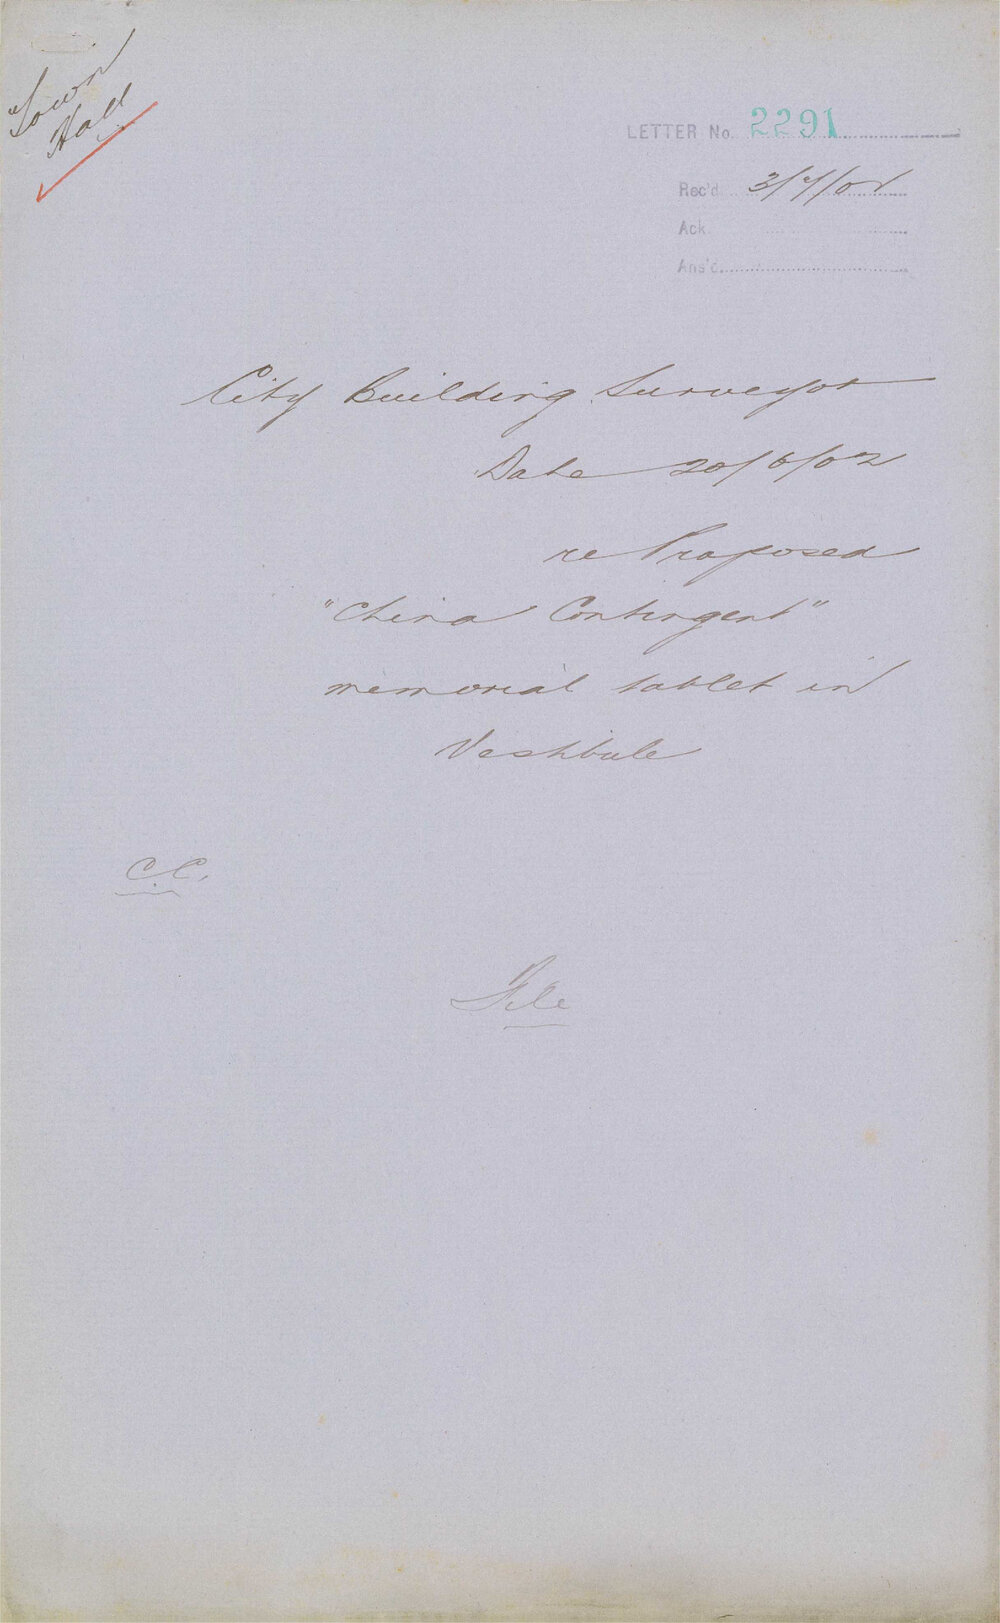 Town
Hall
LETTER No. 2291
Rec'd 3/7/02
Ack
Ans'd
City Building Surveyor
Date 20/6/02
re Proposed
"China Contingent"
memorial tablet in
Vestibule
C.C.
File